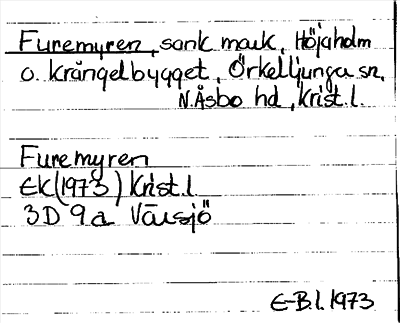 Furemyren, sank mark, Höjaholm
o. Krångelbygget, Örkelljunga sn,
N.Åsbo hd, Krist.l.
Furemyren
EK(1973) Krist.l
3D 9a Vårsjö
E-B.l. 1973